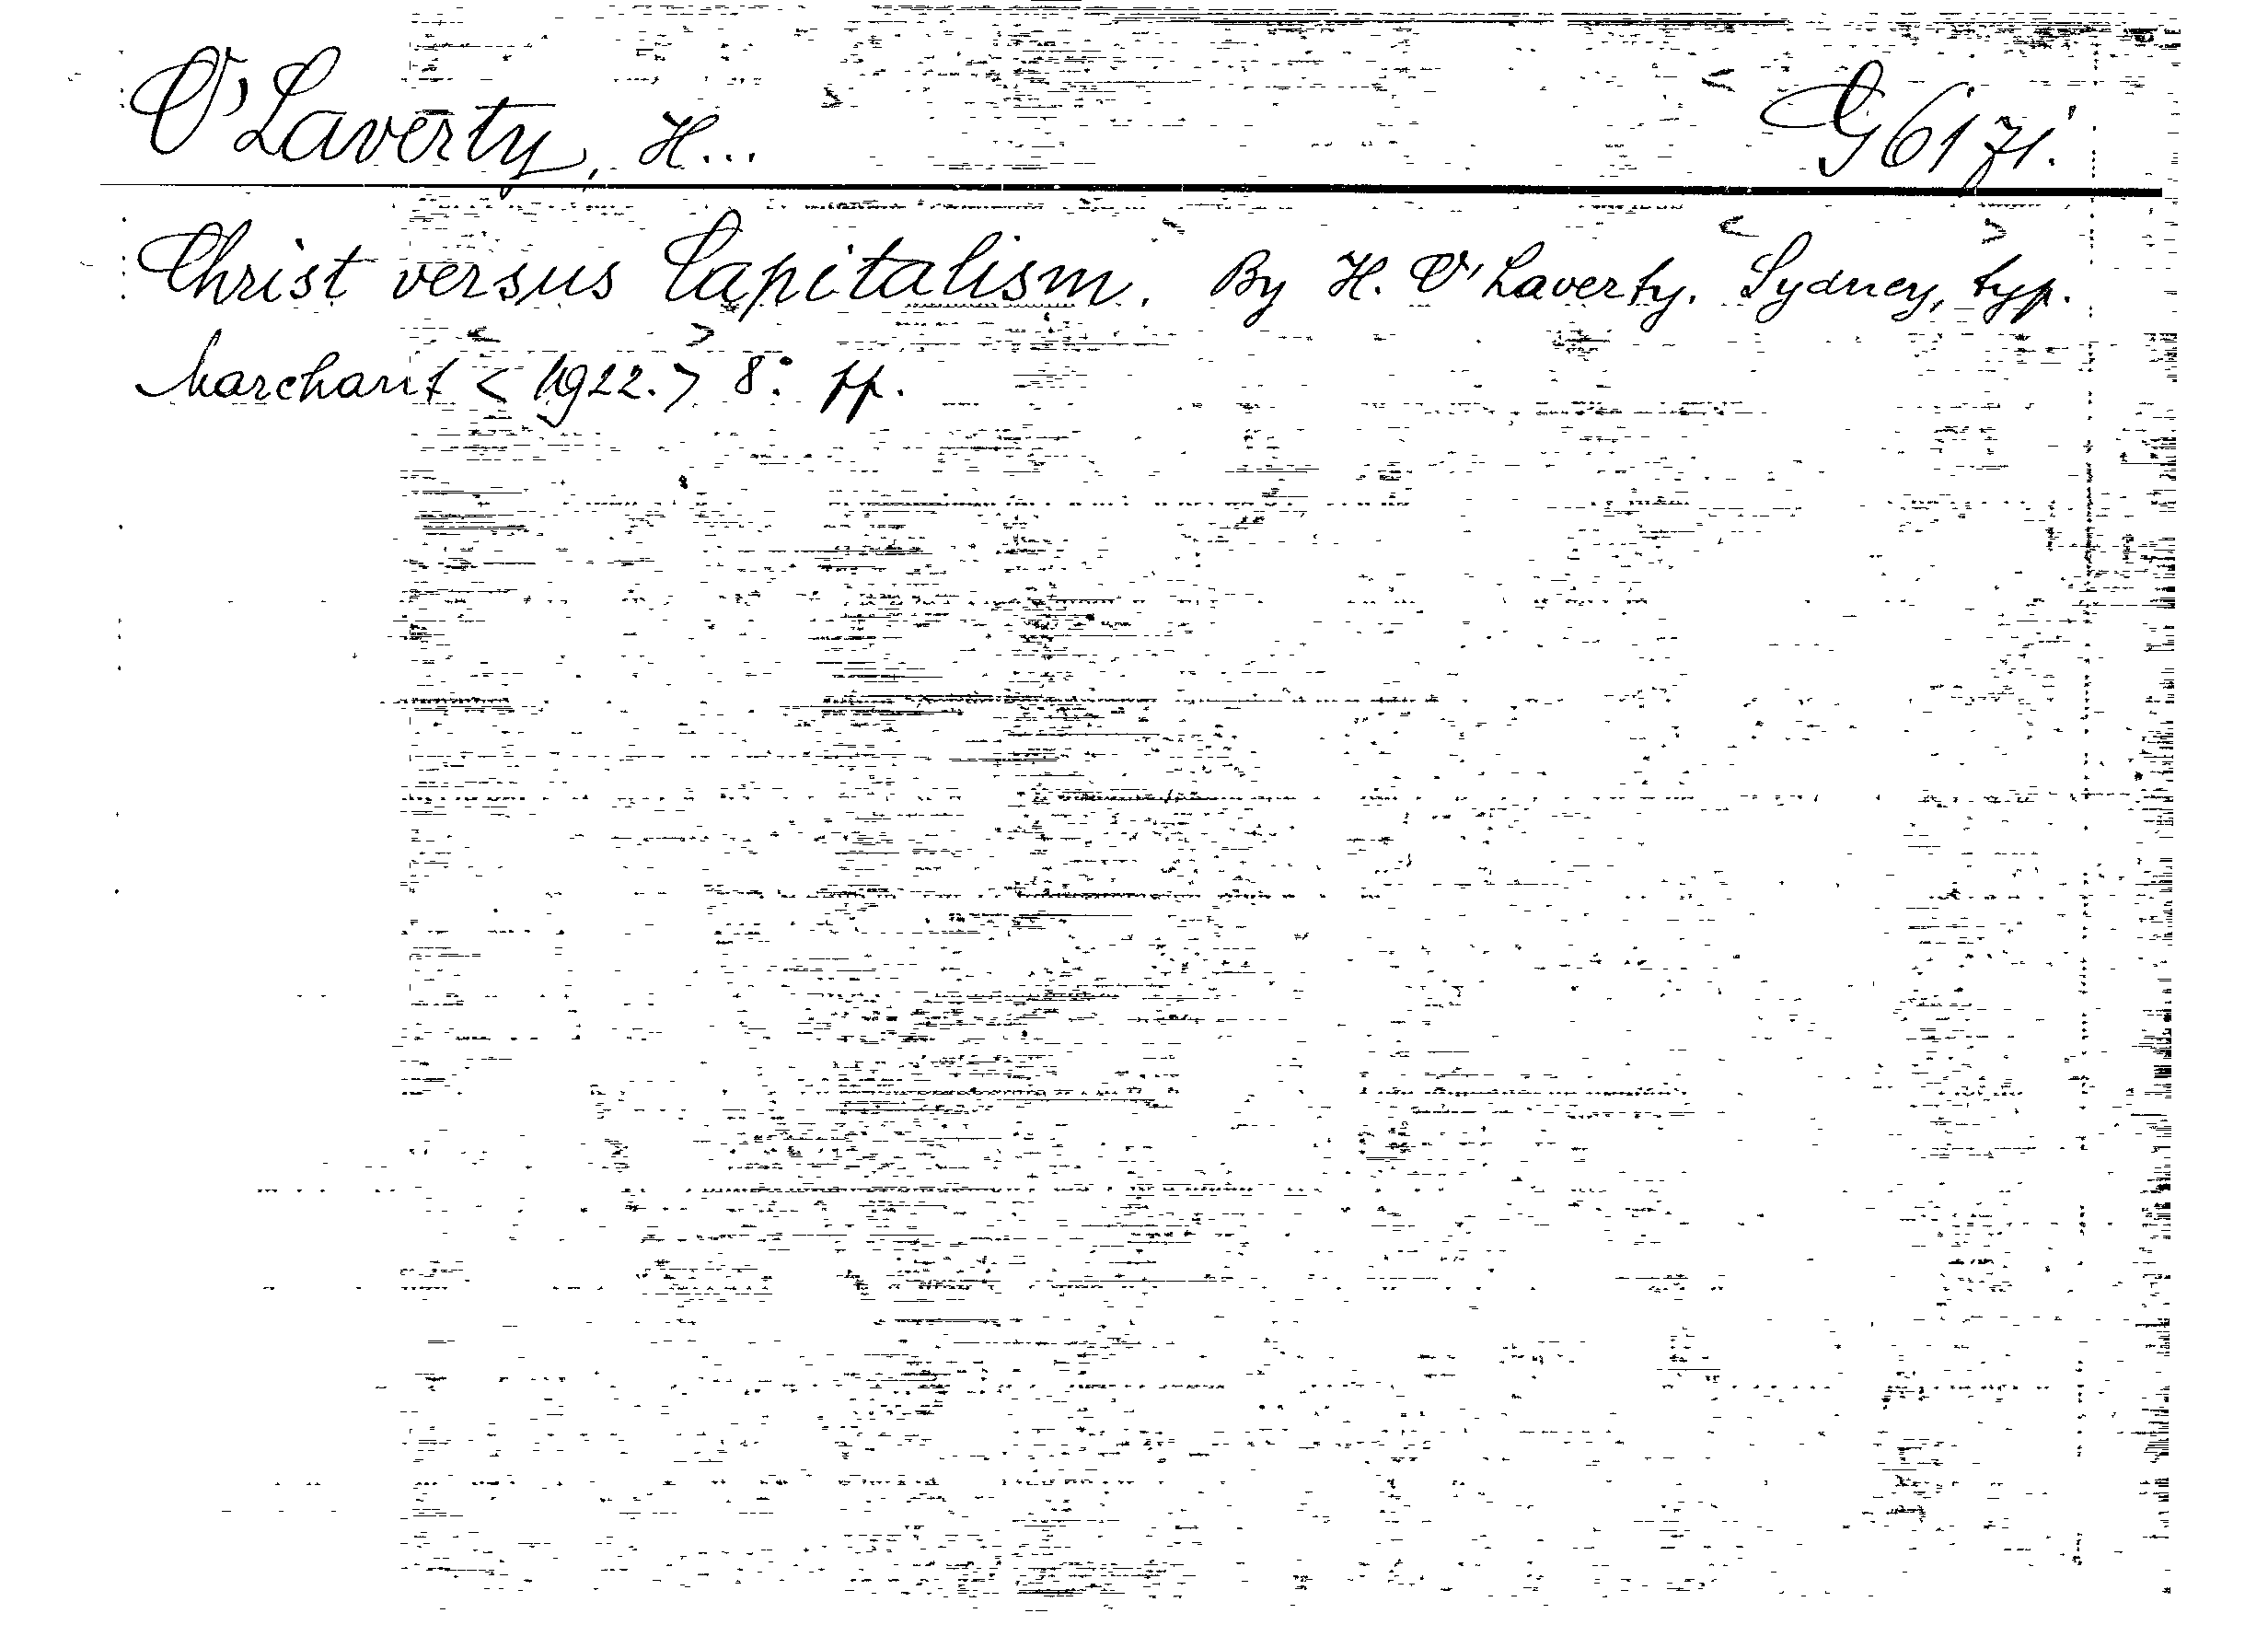 O'Laverty, H... G6171.
Christ versus Capitalism. By H. O'Laverty. Sydney, typ.
Marchant < 1922. > 8° pp.